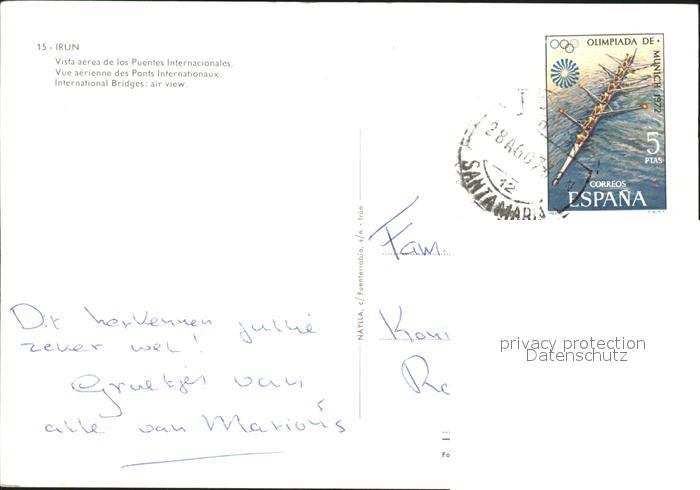 15 - IRÚN
Vista aérea de los Puentes Internacionales.
Vue aérienne des Ponts Internationaux.
International Bridges: air view.
OLIMPIADA DE
MUNICH 1972
5
PTAS
CORREOS
ESPAÑA
28 AGO 7
12
SANTA MARIA
NAYLLA, c/ Fuenterrabía, s/n - Irún
Fam.
Koni
privacy protection
Datenschutz
Dit herkennen jullie
zeker wel!
Groetjes van
alle van Marion's
Fo